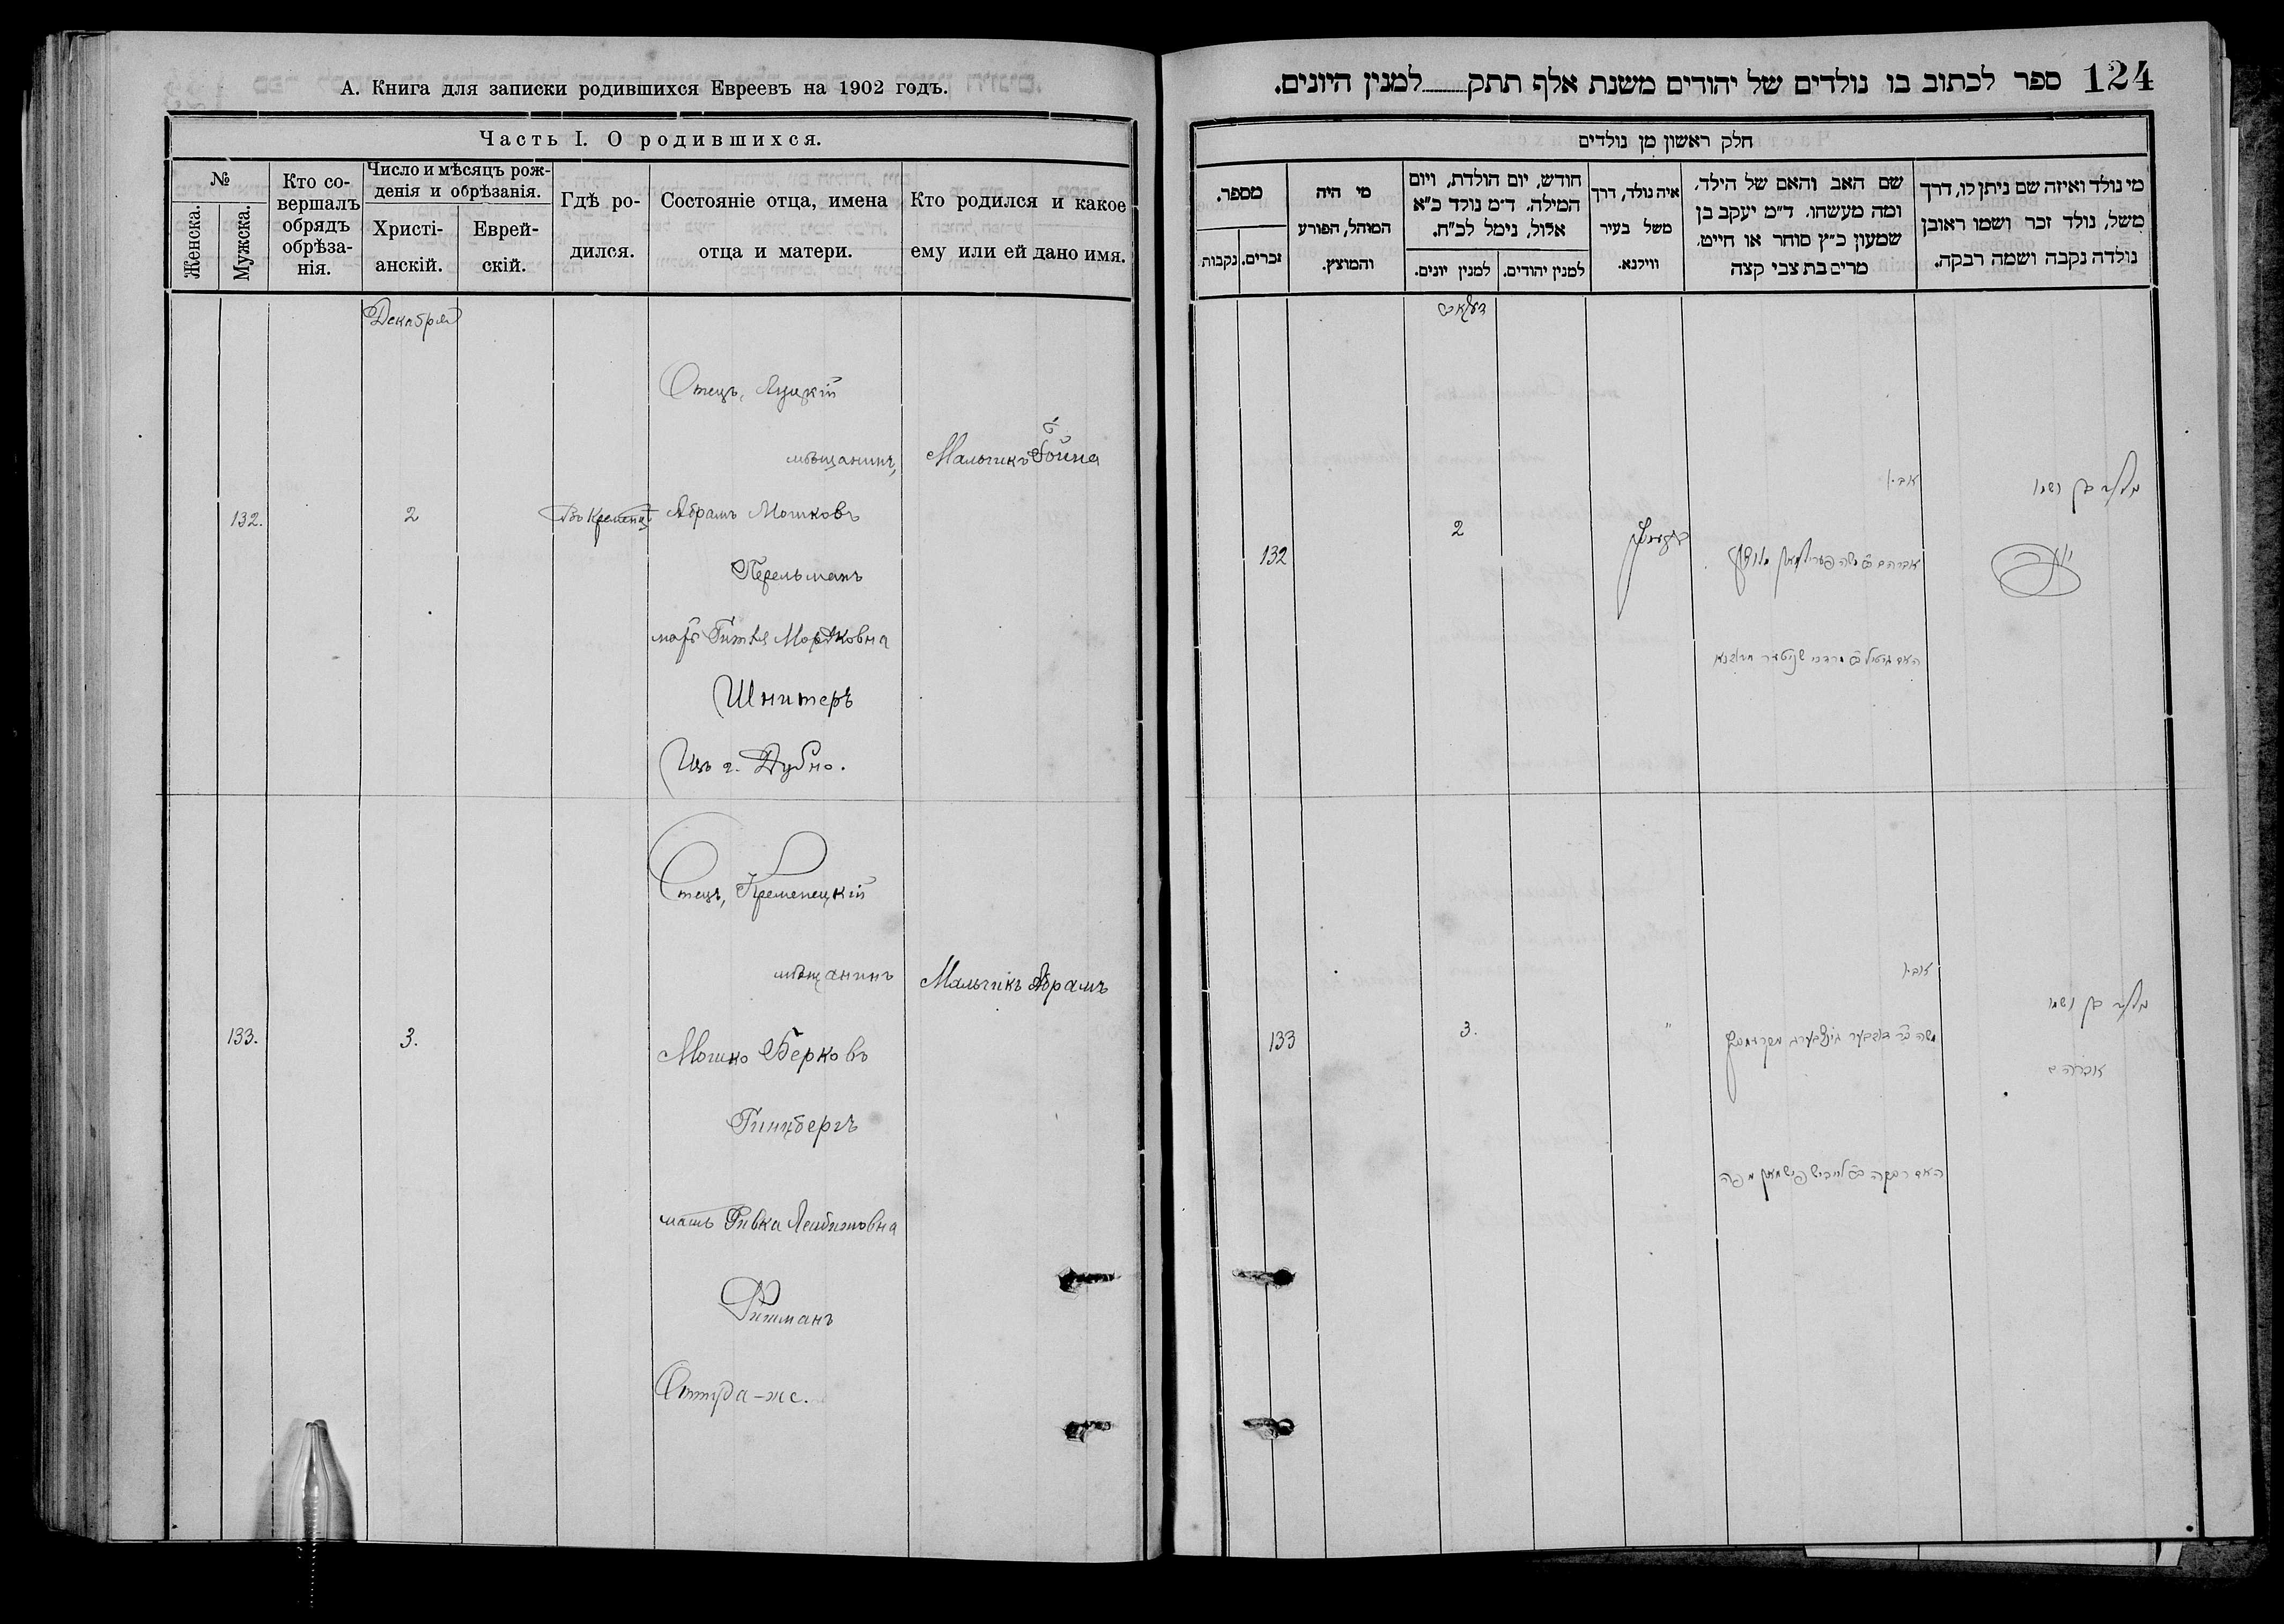 А. Книга для записки родившихся Евреевъ на 1902 годъ.
Часть I. О родившихся.
№
Женска.
Мужска.
Кто со-
вершалъ
обрядъ
обрѣза-
нія.
Число и мѣсяцъ рож-
денія и обрѣзанія.
Христі-
анскій.
Еврей-
скій.
Гдѣ ро-
дился.
Состояніе отца, имена
отца и матери.
Кто родился и какое
ему или ей дано имя.
Декабря
Отецъ, Луцкій
мѣщанинъ,
Мальчикъ
132.
2
Въ Кременцѣ
Абрамъ Мошковъ
Перельманъ
мать Гитля Мордковна
Шнитеръ
Изъ г. Дубно.
Отецъ, Кременецкій
мѣщанинъ
Мальчикъ Абрамъ
133.
3.
Мошко Берковъ
Гинцбергъ
мать Ривка Лейбишовна
Оттуда-же.
124
ספר לכתוב בו נולדים של יהודים משנת אלף תתק למנין היונים.
חלק ראשון מן נולדים
מי נולד ואיזה שם ניתן לו, דרך
משל, נולד זכר ושמו ראובן
נולדה נקבה ושמה רבקה.
שם האב והאם של הילד,
ומה מעשהו. ד״מ יעקב בן
שמעון כ״ץ סוחר או חייט,
מרים בת צבי קצה
איה נולד, דרך
משל בעיר
ווילנא.
חודש, יום הולדת, ויום
המילה. ד״מ נולד כ״א
אלול, נימל לכ״ח.
למנין יהודים.
למנין יונים.
מי היה
המוהל, הפורע
והמוצץ.
מספר.
זכרים.
נקבות.
אביו
132
2
אביו
133
3.
"
אברהם